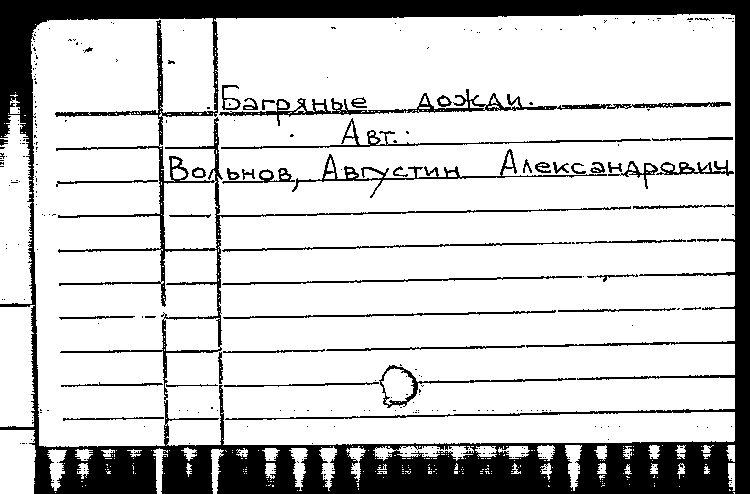 Багряные дожди.
Авт.:
Вольнов, Августин Александрович